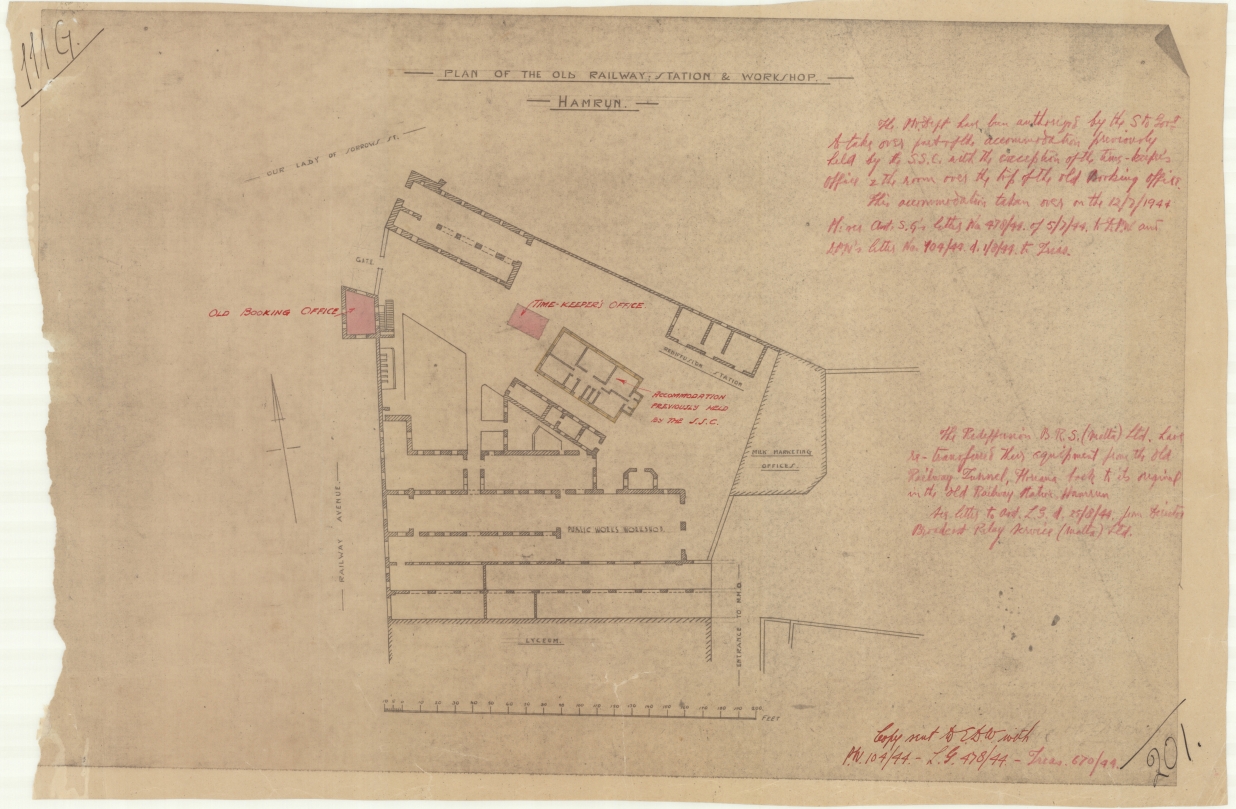 111 G.
PLAN OF THE OLD RAILWAY-STATION & WORKSHOP.
HAMRUN.
OUR LADY OF SORROWS ST.
The have been authorized by the
to take over part of the accommodation previously
held by the S.S.C. with the exception of the time-keeper's
office & the room over the top of the old Booking Office.
This accommodation taken over on the 12/7/1944
letter No 478/44. of 5/7/44. to
letter No. 104/44. d. to Treas.
GATE
OLD BOOKING OFFICE
(TIME-KEEPER) OFFICE
STATION
ACCOMMODATION
PREVIOUSLY HELD
BY THE S.S.C.
MILK MARKETING
OFFICES.
The Rediffusion B.R.S. (Malta) Ltd. have
re-transferred their equipment from the old
Railway Tunnel, back to its original
in the Old Railway Station Hamrun
letter to from
Broadcast Relay Service (Malta) Ltd.
RAILWAY AVENUE.
PUBLIC WORKS WORKSHOP.
LYCEUM.
ENTRANCE TO
FEET
Copy sent to with
P.W. 104/44. - L.G. 478/44. - Treas. 670/44.
201.